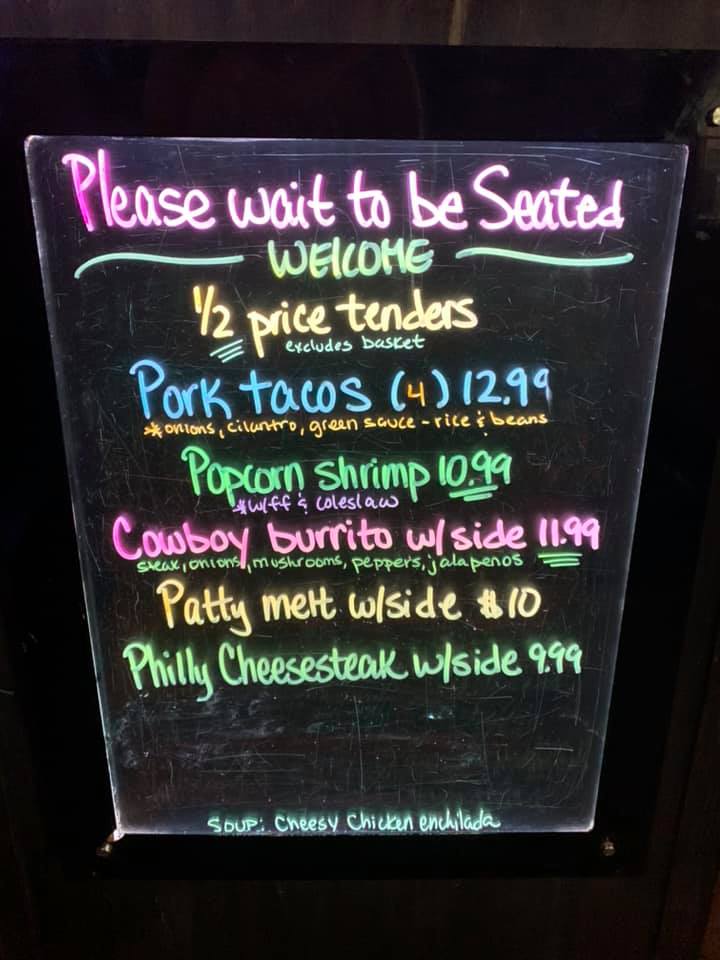 Please wait to be Seated
WELCOME
1/2 price tenders
excludes basket
Pork tacos (4) 12.99
*onions, cilantro, green sauce - rice & beans
Popcorn shrimp 10.99
*w/ff & coleslaw
Cowboy burrito w/side 11.99
steak, onions, mushrooms, peppers, jalapenos
Patty melt w/side $10
Philly Cheesesteak w/side 9.99
SOUP: Cheesy Chicken enchilada